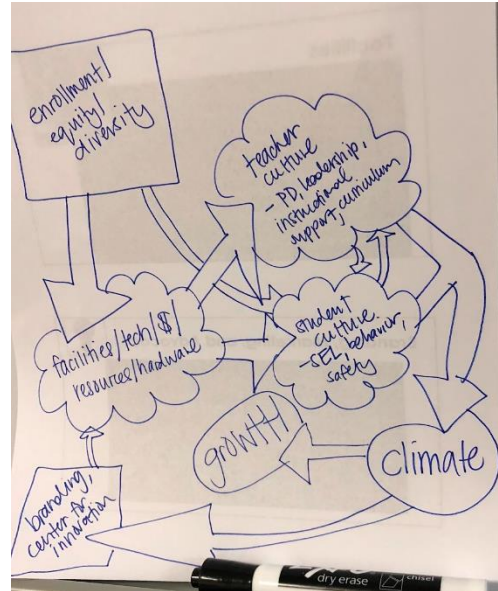 enrollment/
equity/
diversity
teacher
culture
- PD, leadership,
instructional
support, curriculum
facilities/tech/$/
resources/hardware
student
culture
- SEL, behavior,
safety
growth!
climate
branding,
center for
innovation
dry erase
chisel